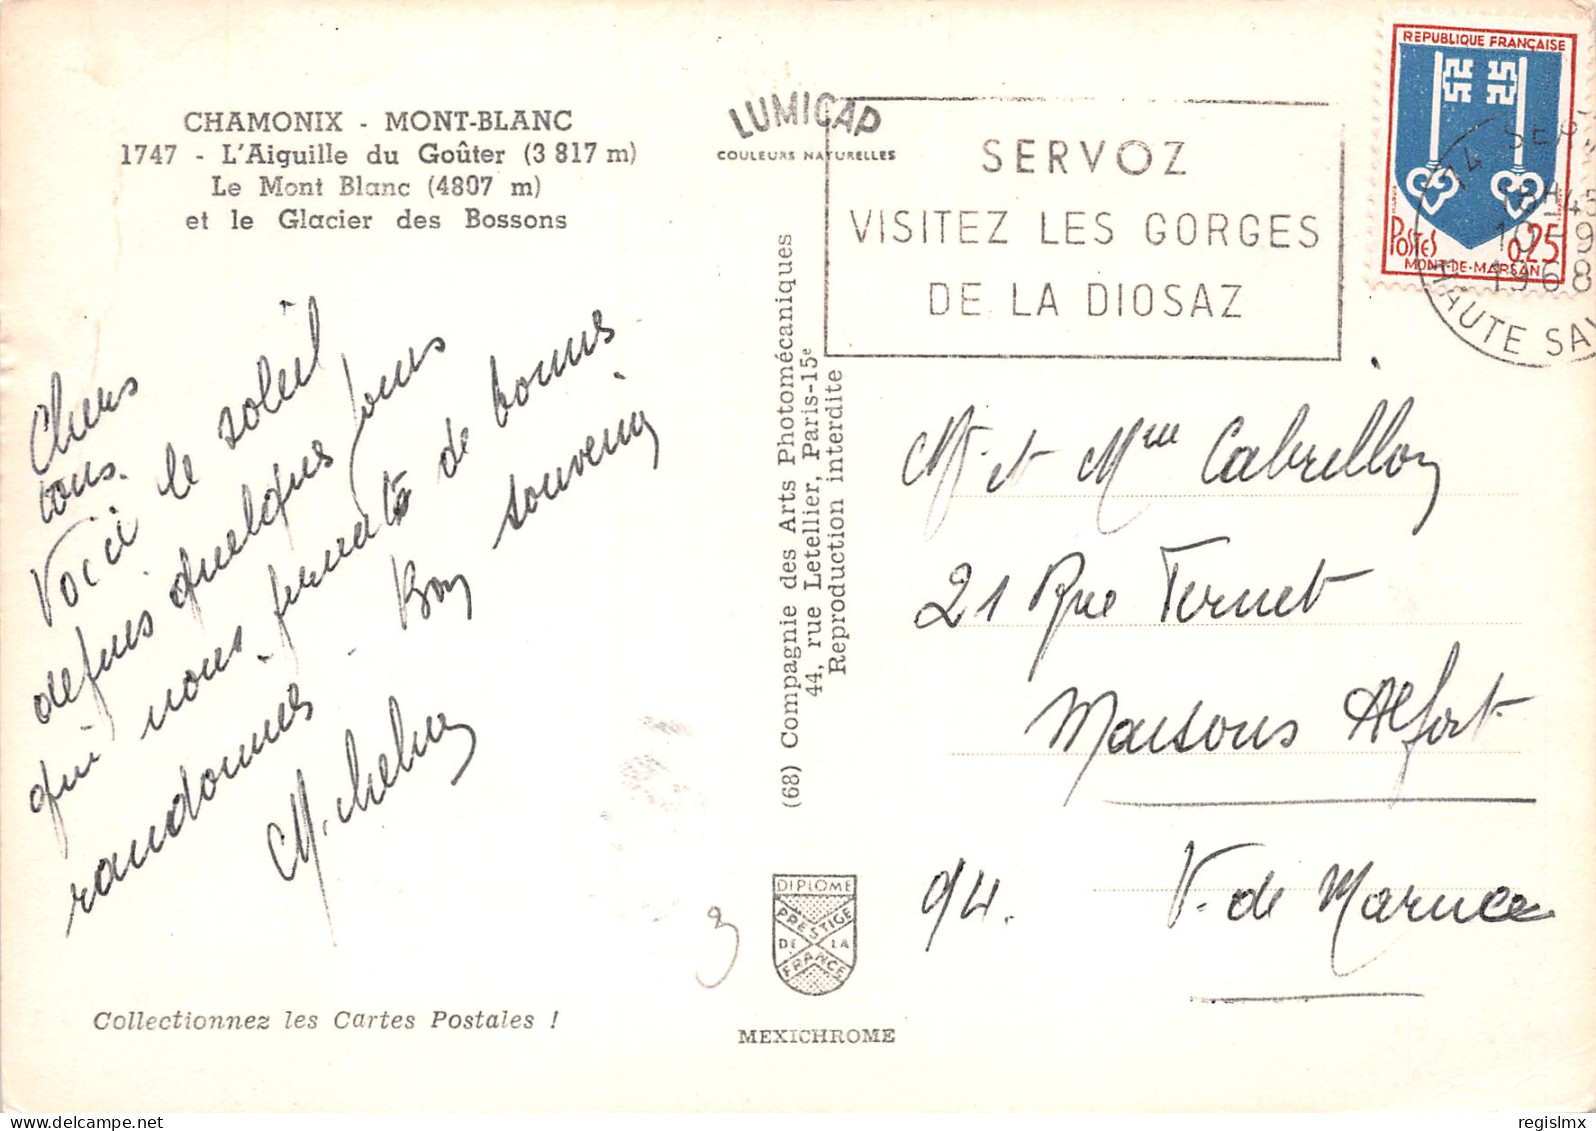 CHAMONIX - MONT-BLANC
1747 - L'Aiguille du Goûter (3 817 m)
Le Mont Blanc (4807 m)
et le Glacier des Bossons
Chers
tous.
Voici le soleil
depuis quelques jours
qui nous permets de bonnes
randonnees. Bon souvenir
Collectionnez les Cartes Postales !
LUMICAP
COULEURS NATURELLES
(68) Compagnie des Arts Photomécaniques
44, rue Letellier, Paris-15e
Reproduction interdite
3
DIPLOME
PRESTIGE
DE LA
FRANCE
MEXICHROME
SERVOZ
VISITEZ LES GORGES
DE LA DIOSAZ
REPUBLIQUE FRANÇAISE
POSTES
0,25
MONT-DE-MARSAN
74 SER
18H45
10-9
1968
HAUTE SAV
M. et Mme Cabrillon
21 Rue Ternet
Maisons Alfort
94. V. de Marne
regislmx